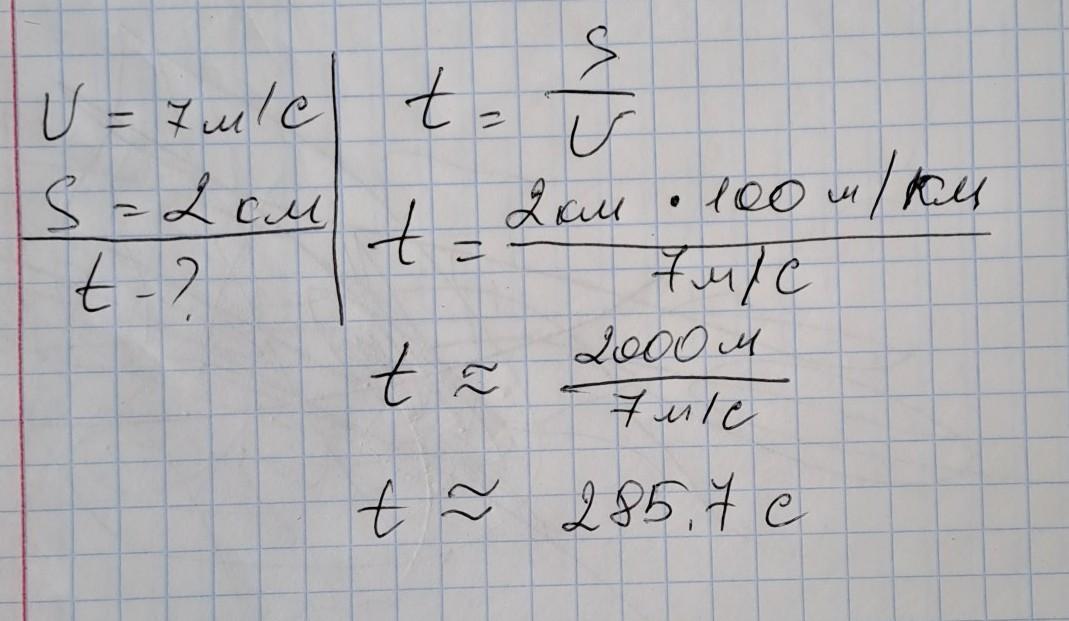 υ = 7 м/с
S = 2 км
t - ?
t = S / υ
t = 2 км · 100 м/км / 7 м/с
t ≈ 2000 м / 7 м/с
t ≈ 285.7 с